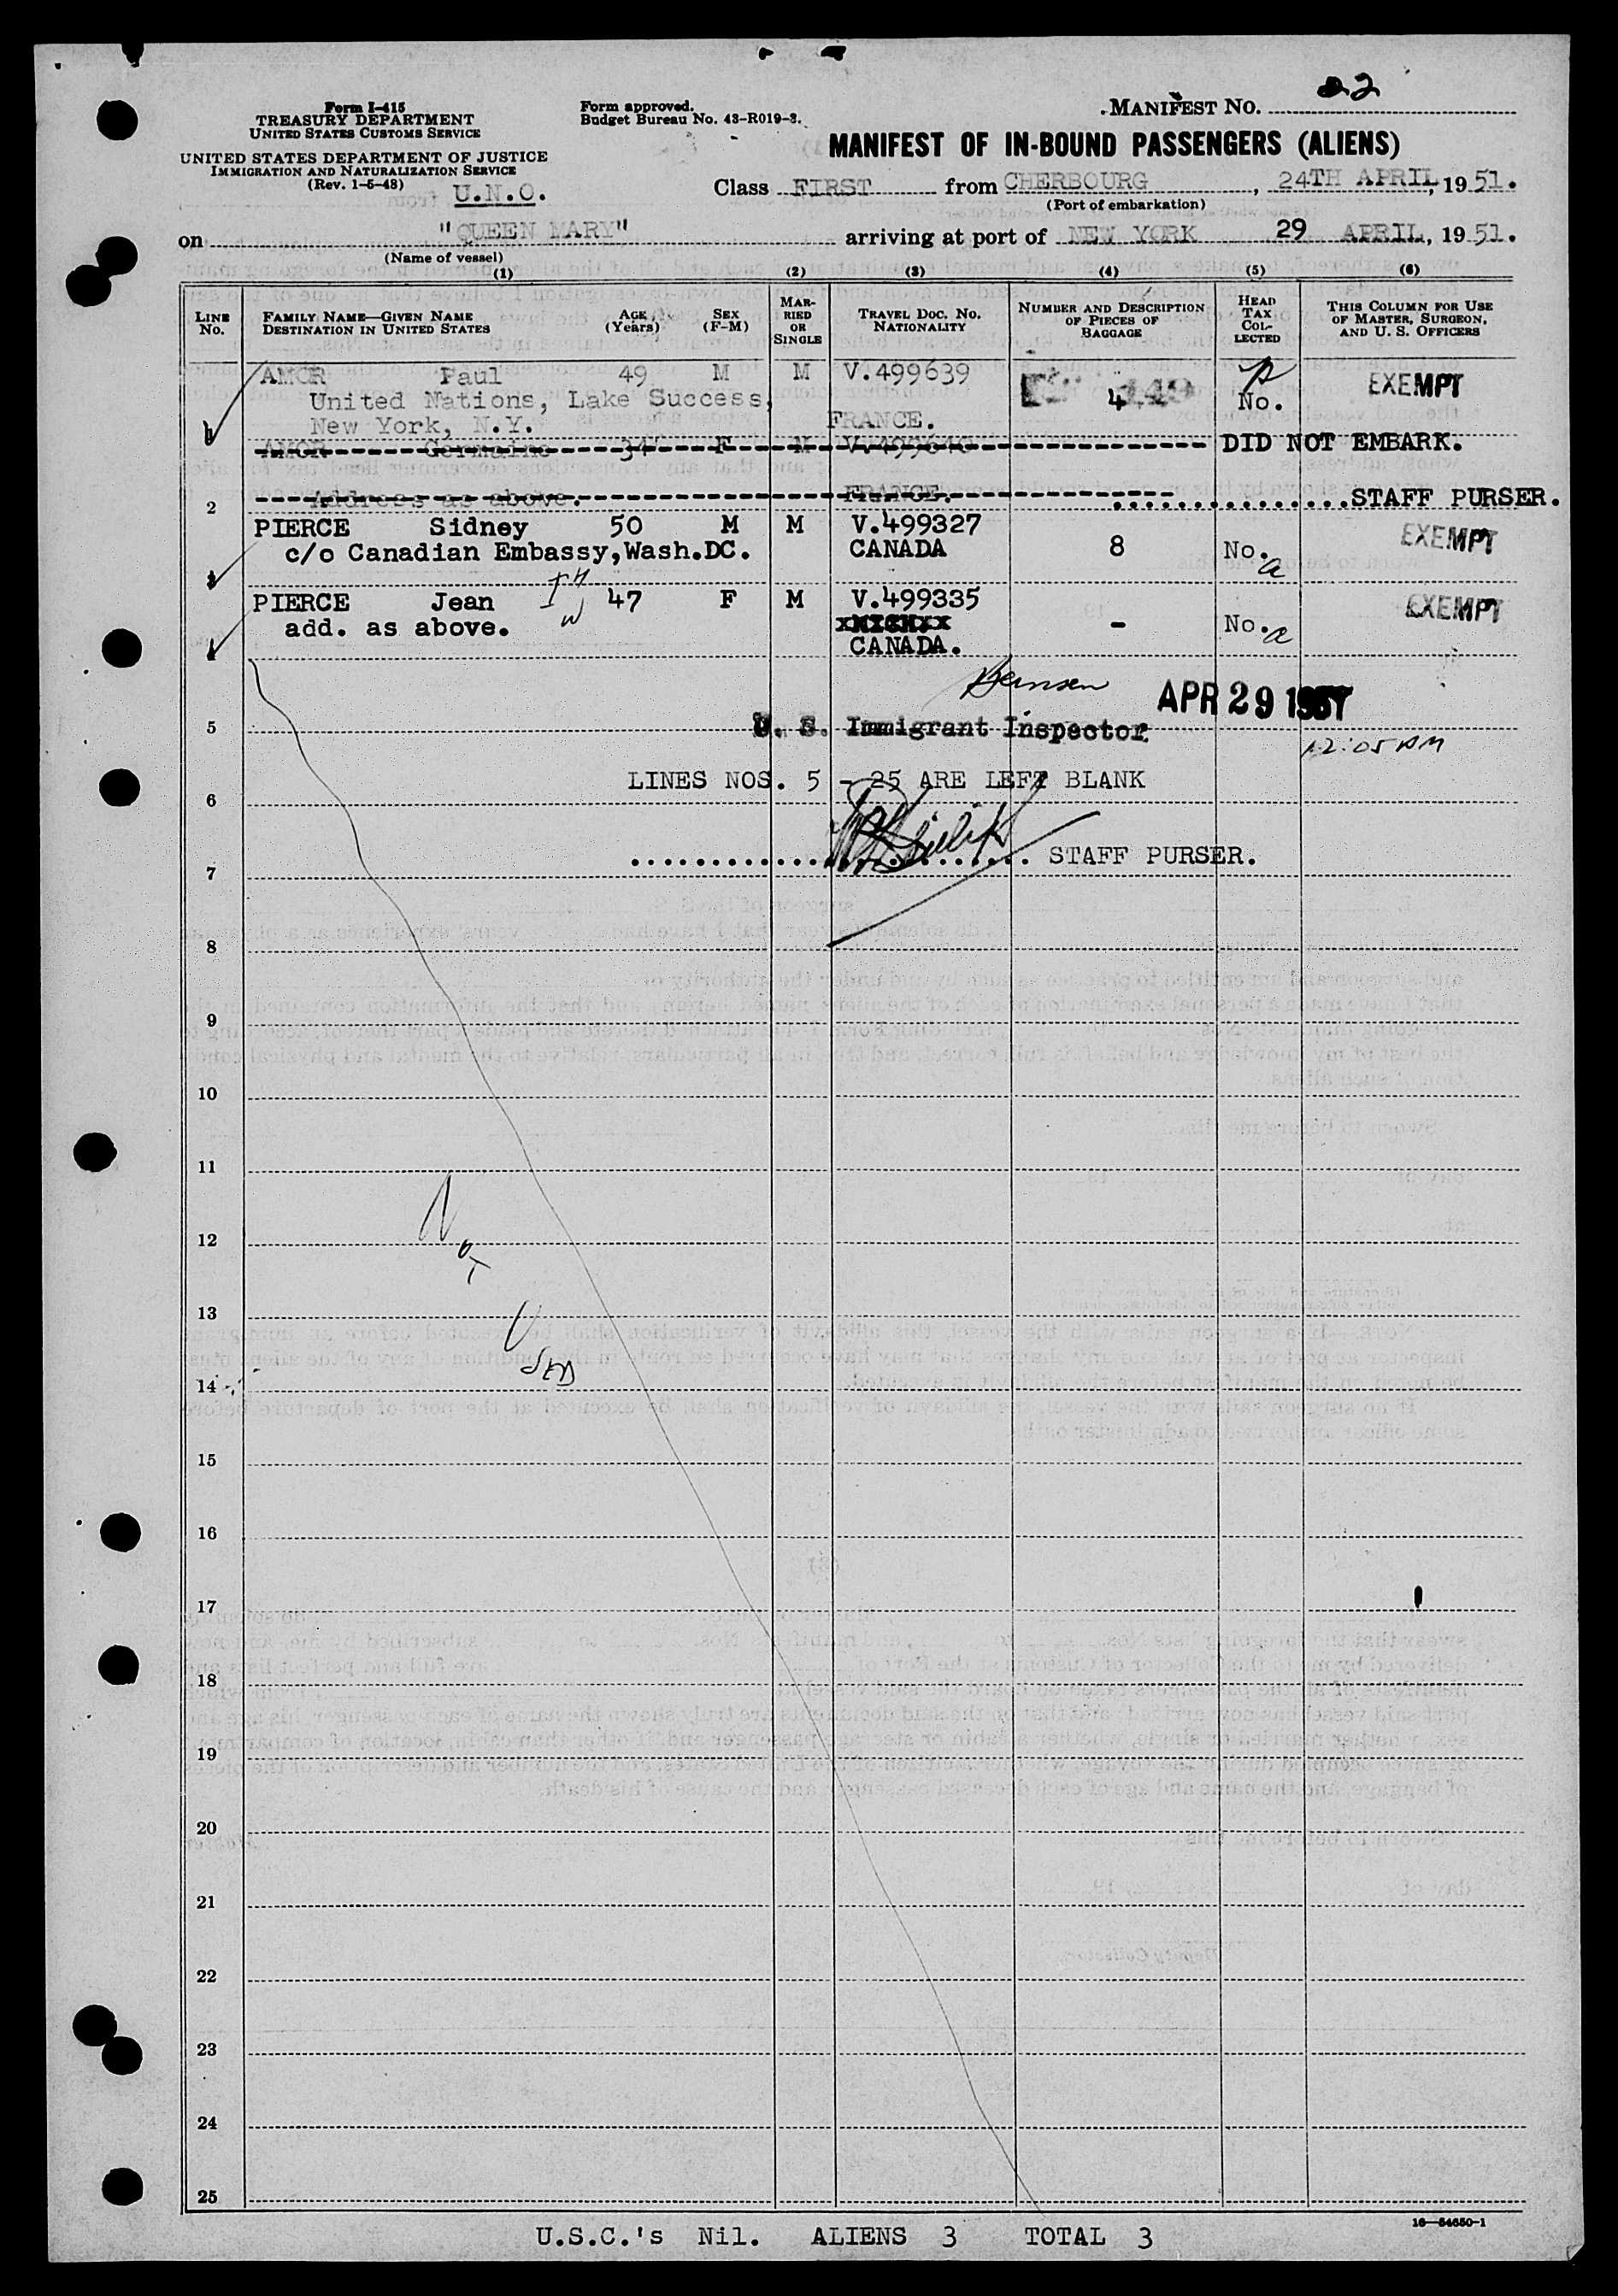 Form I-415
TREASURY DEPARTMENT
UNITED STATES CUSTOMS SERVICE
UNITED STATES DEPARTMENT OF JUSTICE
IMMIGRATION AND NATURALIZATION SERVICE
(Rev. 1-5-48)
U.N.O.
Form approved.
Budget Bureau No. 43-R019-3.
MANIFEST NO. 22
MANIFEST OF IN-BOUND PASSENGERS (ALIENS)
Class FIRST from CHERBOURG, 24TH APRIL, 1951.
(Port of embarkation)
on "QUEEN MARY" arriving at port of NEW YORK 29 APRIL, 1951.
(Name of vessel)
(1) (2) (3) (4) (5) (6)
LINE No.
FAMILY NAME—GIVEN NAME
DESTINATION IN UNITED STATES
AGE (Years)
SEX (F-M)
MARRIED OR SINGLE
TRAVEL DOC. No.
NATIONALITY
NUMBER AND DESCRIPTION OF PIECES OF BAGGAGE
HEAD TAX COLLECTED
THIS COLUMN FOR USE OF MASTER, SURGEON, AND U. S. OFFICERS
AMOR Paul 49 M M V.499639 4 No. EXEMPT
United Nations, Lake Success,
New York, N.Y. FRANCE.
1
AMOR Germaine 34 F M V.499640 DID NOT EMBARK.
Address as above. FRANCE. STAFF PURSER.
2
PIERCE Sidney 50 M M V.499327 EXEMPT
c/o Canadian Embassy,Wash.DC. CANADA 8 No.
3
PIERCE Jean 47 F M V.499335 EXEMPT
add. as above. - No.
CANADA.
4
APR 29 1951
5 U. S. Immigrant Inspector
12:05 AM
LINES NOS. 5 - 25 ARE LEFT BLANK
6
STAFF PURSER.
7
8
9
10
11
12
NOT
13
USED
14
15
16
17
18
19
20
21
22
23
24
25
16—54650-1
U.S.C.'s Nil. ALIENS 3 TOTAL 3